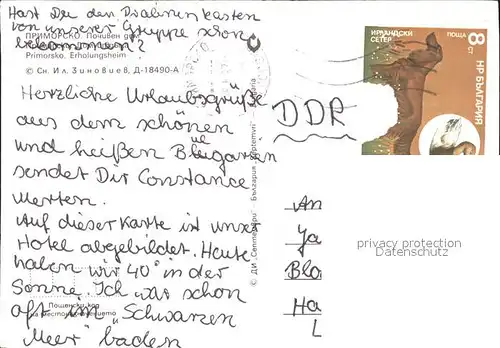 Hast Du den Pralinenkasten
von unserer Gruppe schon
bekommen?
ПРИМОРСКО. Почивен дом
Primorsko, Erholungsheim
© Сн. Ил. Зиновиев, Д-18490-А
Herzliche Urlaubsgrüße
aus dem schönen
und heißen Bulgarien
sendet Dir Constance
Merten.
Auf dieser Karte ist unser
Hotel abgebildet. Heute
haben wir 40° in der
Sonne. Ich war schon
oft im „Schwarzen
Meer" baden
Пощенски код
на местоназначението
© ДИ „Септември"
България
DDR
ИРЛАНДСКИ
СЕТЕР
ПОЩА
8
СТ
НР БЪЛГАРИЯ
An
Ya
Bla
Ha
L
privacy protection
Datenschutz